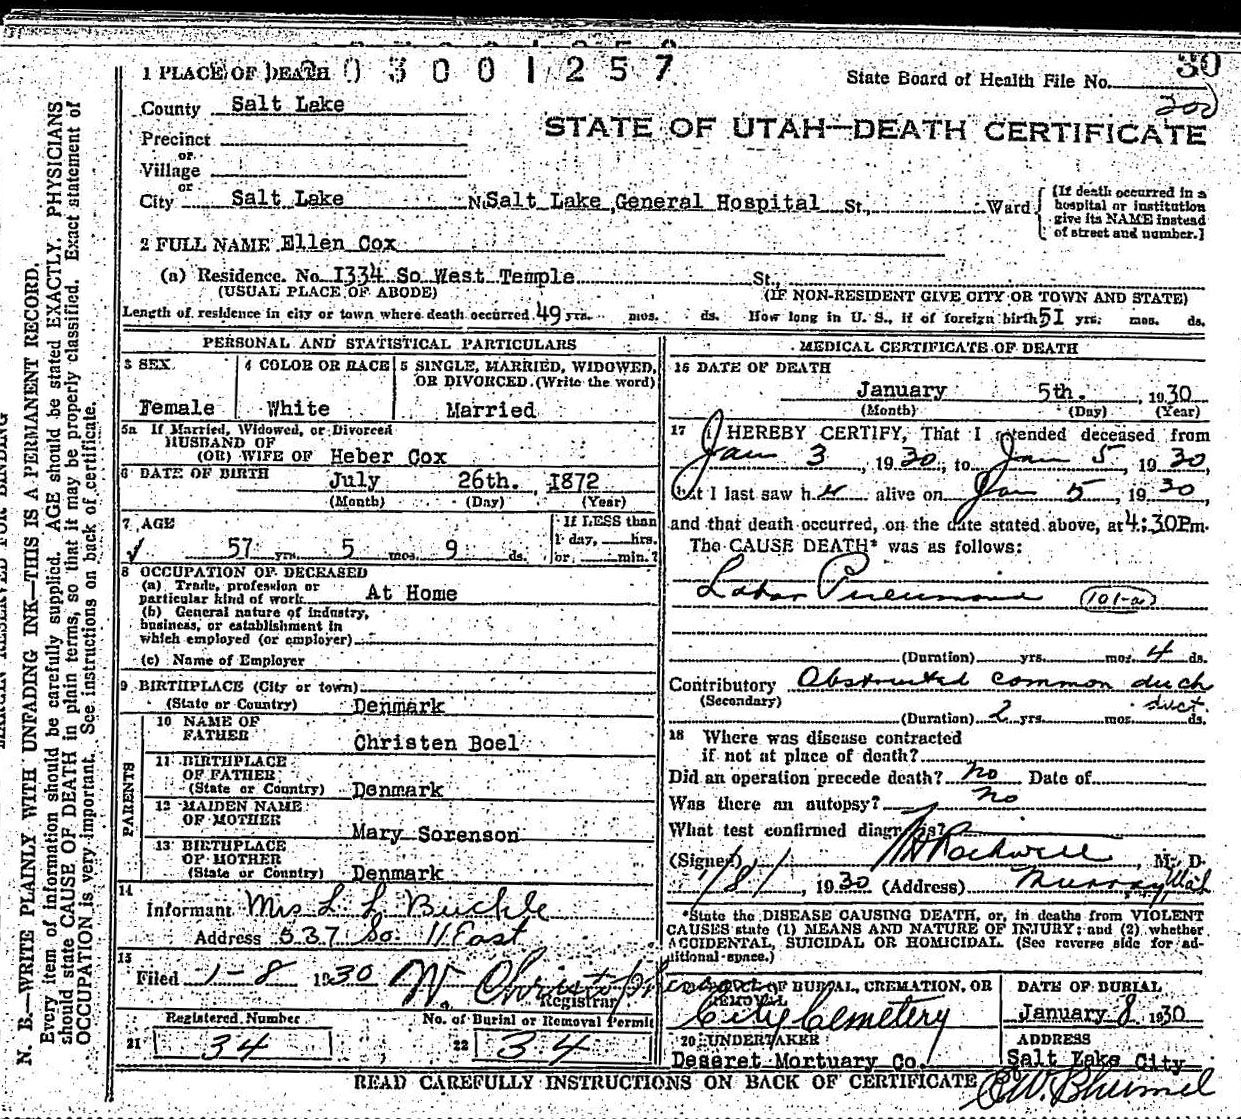 1 PLACE OF DEATH 03001257
State Board of Health File No. 30
County Salt Lake
STATE OF UTAH—DEATH CERTIFICATE
Precinct
or
Village
or
City Salt Lake N Salt Lake General Hospital St., Ward
(If death occurred in a hospital or institution give its NAME instead of street and number.]
2 FULL NAME Ellen Cox
(a) Residence. No. 1334 So West Temple St.,
(USUAL PLACE OF ABODE) (IF NON-RESIDENT GIVE CITY OR TOWN AND STATE)
Length of residence in city or town where death occurred 49 yrs. mos. ds. How long in U. S., if of foreign birth 51 yrs. mos. ds.
PERSONAL AND STATISTICAL PARTICULARS
3 SEX
Female
4 COLOR OR RACE
White
5 SINGLE, MARRIED, WIDOWED,
OR DIVORCED (Write the word)
Married
5a If Married, Widowed, or Divorced
HUSBAND OF
(OR) WIFE OF Heber Cox
6 DATE OF BIRTH July 26th. 1872
(Month) (Day) (Year)
7 AGE
57 yrs. 5 mos. 9 ds.
If LESS than
1 day, hrs.
or min.?
8 OCCUPATION OF DECEASED
(a) Trade, profession or
particular kind of work At Home
(b) General nature of industry,
business, or establishment in
which employed (or employer)
(c) Name of Employer
9 BIRTHPLACE (City or town)
(State or Country) Denmark
PARENTS
10 NAME OF
FATHER Christen Boel
11 BIRTHPLACE
OF FATHER
(State or Country) Denmark
12 MAIDEN NAME
OF MOTHER Mary Sorenson
13 BIRTHPLACE
OF MOTHER
(State or Country) Denmark
14
Informant Mrs L. L Buckle
Address 537 So. 11 East
15
Filed 1-8 1930 W. Christopherson
Registrar
Registered Number
21 34
No. of Burial or Removal Permit
22 34
MEDICAL CERTIFICATE OF DEATH
16 DATE OF DEATH
January 5th. , 1930
(Month) (Day) (Year)
17 I HEREBY CERTIFY, That I attended deceased from
Jan 3, 1930, to Jan 5, 1930,
that I last saw her alive on Jan 5, 1930,
and that death occurred, on the date stated above, at 4:30Pm.
The CAUSE DEATH* was as follows:
Lobar Pneumonia (101-a)
(Duration) yrs. mos. 4 ds.
Contributory Obstructed common duch
(Secondary) duct.
(Duration) 2 yrs. mos. ds.
18 Where was disease contracted
if not at place of death?
Did an operation precede death? no Date of
Was there an autopsy? no
What test confirmed diagnosis?
(Signed) Rockwell, M. D.
1/8/, 1930 (Address) Murray, Utah
*State the DISEASE CAUSING DEATH, or, in deaths from VIOLENT
CAUSES state (1) MEANS AND NATURE OF INJURY; and (2) whether
ACCIDENTAL, SUICIDAL OR HOMICIDAL. (See reverse side for ad-
ditional space.)
OF BURIAL, CREMATION, OR
REMOVAL
City Cemetery
DATE OF BURIAL
January 8 1930
20 UNDERTAKER
Deseret Mortuary Co.
ADDRESS
Salt Lake City
READ CAREFULLY INSTRUCTIONS ON BACK OF CERTIFICATE
N. B.—WRITE PLAINLY WITH UNFADING INK—THIS IS A PERMANENT RECORD.
Every item of information should be carefully supplied. AGE should be stated EXACTLY. PHYSICIANS
should state CAUSE OF DEATH in plain terms, so that it may be properly classified. Exact statement of
OCCUPATION is very important. See instructions on back of certificate.